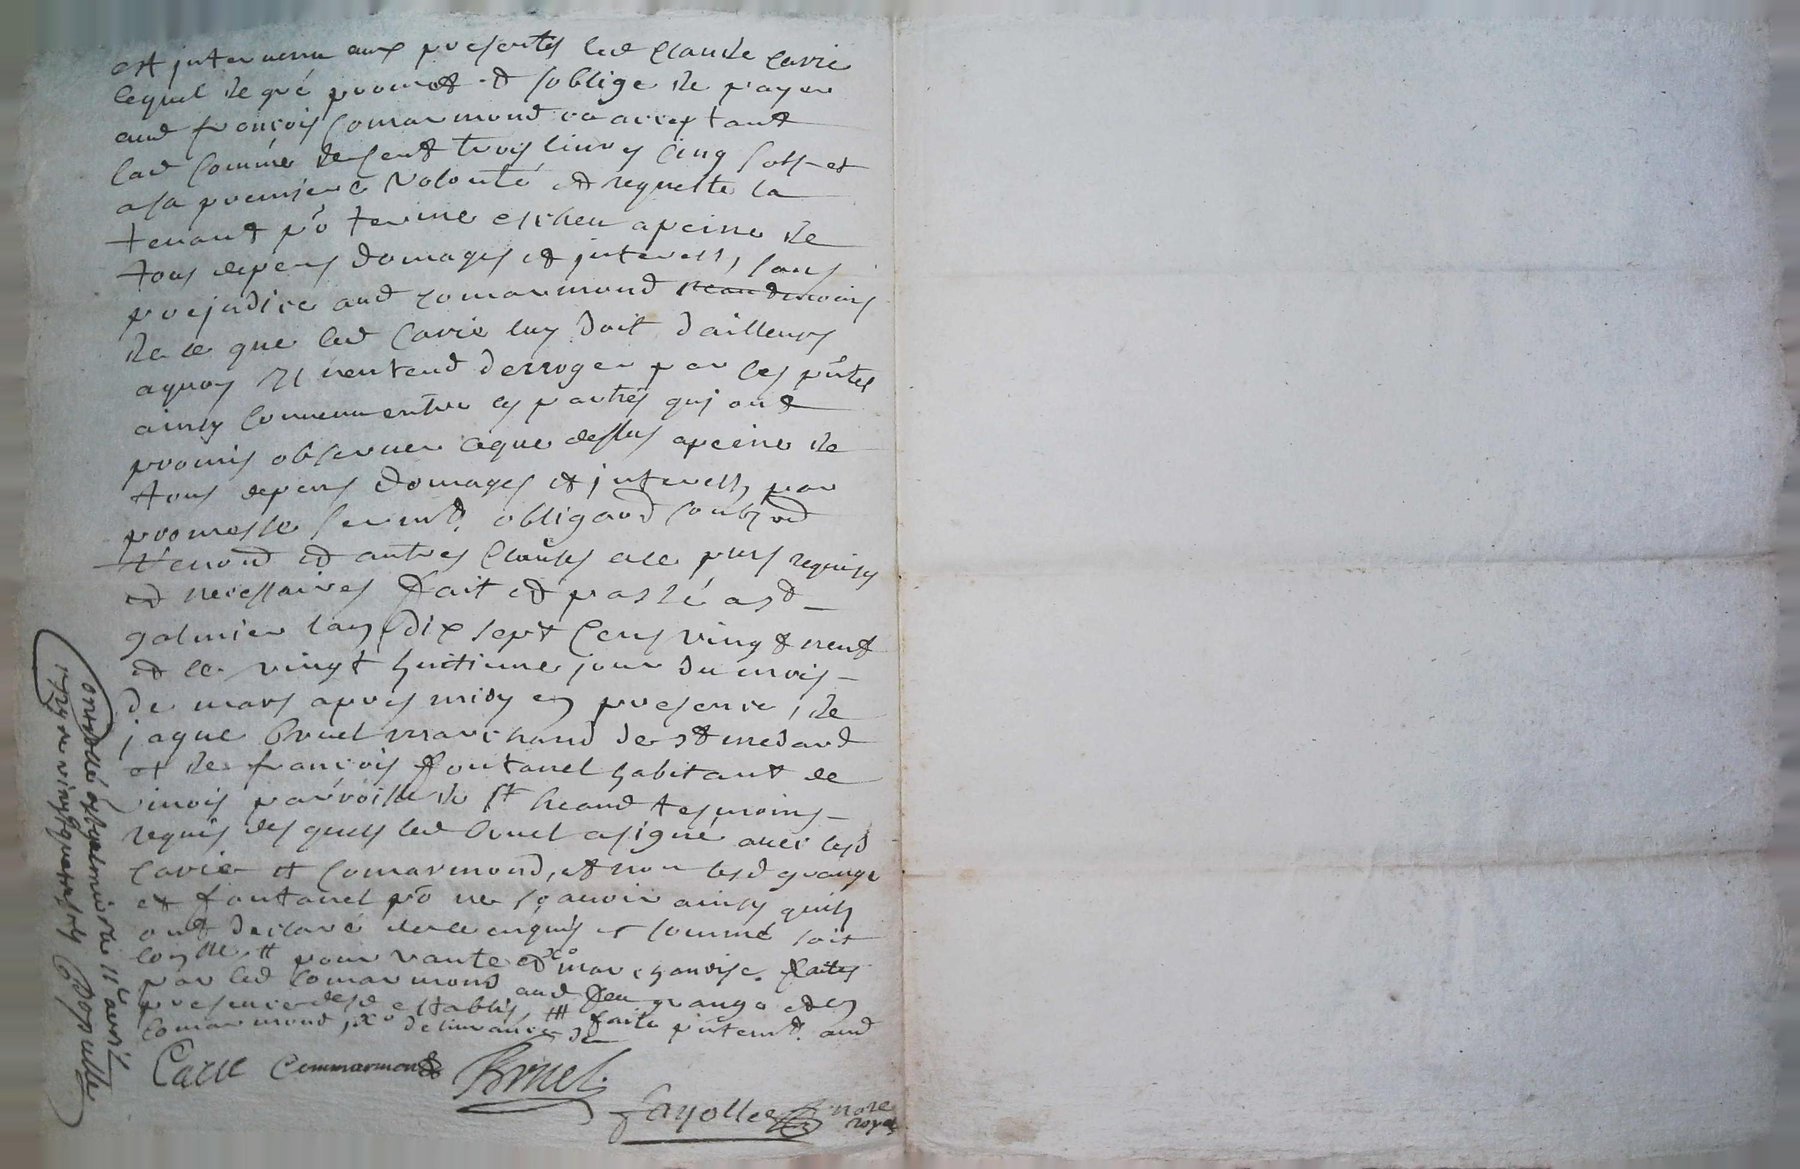 est jntervenu aux presentes led Claude Carie
lequel de gré promet et soblige de payer
aud françois Comarmond ce acceptant
lad somme de cent trois livres cinq sols et
a sa premiere volonté et requette la
tenant po terme escheu a peine de
tous depens domages et jnterests, sans
prejudice aud Comarmond neaudmoins
de ce que led Carie luy doit dailleurs
aquoy Il nentend derroger par ces pntes
ainsy convenu entre les parties qui ont
promis observer ceque dessus a peine de
tous depens domages et jnterests par
promesse sermt. obligaōd soubz
renond et autres clauses de plus requises
et necessaires fait et passé a st
galmier lan dix sept cens vingt neuf
et le vingt huitieme jour du mois
de mars apres midy en presence, de
jaque Bruel marchand de st medard
et de françois fontanel habitant de
parroisse de st heand tesmoins
requis desquels led Bruel a signé avec lesd
Carie et Comarmond, et non lesd grange
et fontanel po ne sçavoir ainsy quils
ont declaré de ce enquis et sommé soit
# pour vante et marchandise faites
par led Comarmond aud feu grange et en
presence desd establis, ## faite pntemt. aud
Comarmond delivrance de
Carie Commarmond Bruel
fayolle nore
royal
Controllé a st galmier le 11e avril
1729 Re vingt quatre sols